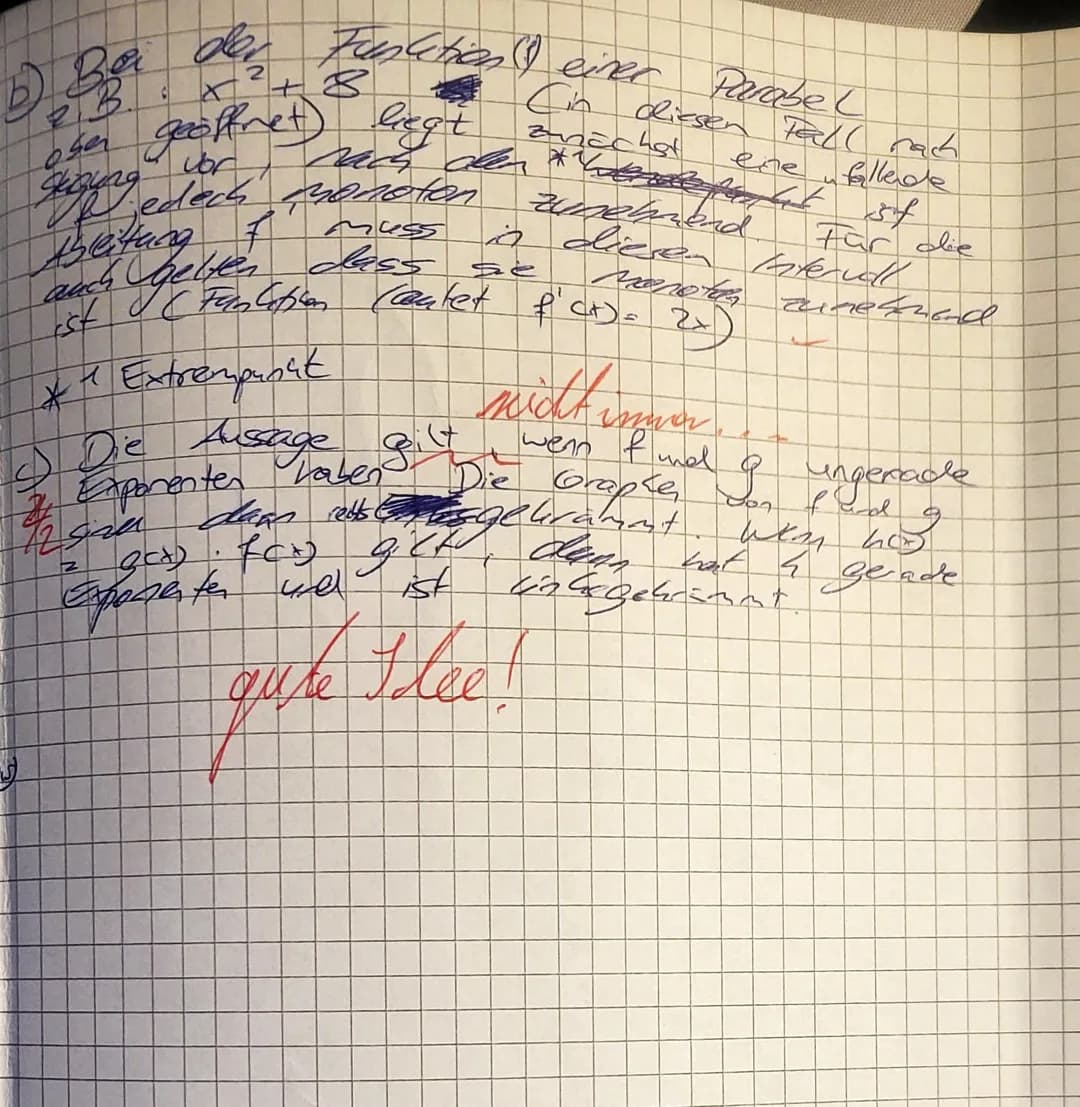 b) Bei der Funktion (f) einer Parabel
z.B.: x² + 8 (in diesen Fall nach
oben geöffnet) liegt zunächst eine fallende
Steigung vor, nach dem *1 ist
f jedoch monoton zunehmend. Für die
Ableitung f' muss in diesen Intervall
auch gelten dass sie monoton zunehmend
ist (Funktion lautet f'(x) = 2x)
*1 Extrempunkt
nicht immer...
c) Die Aussage gilt, wenn f und g ungerade
Exponenten haben. Die Graphen von f und g
sind dann rechtsgekrümmt. Wenn h(x)
= g(x) · f(x) gilt, dann hat h gerade
Exponenten und ist linksgekrümmt.
gute Idee!